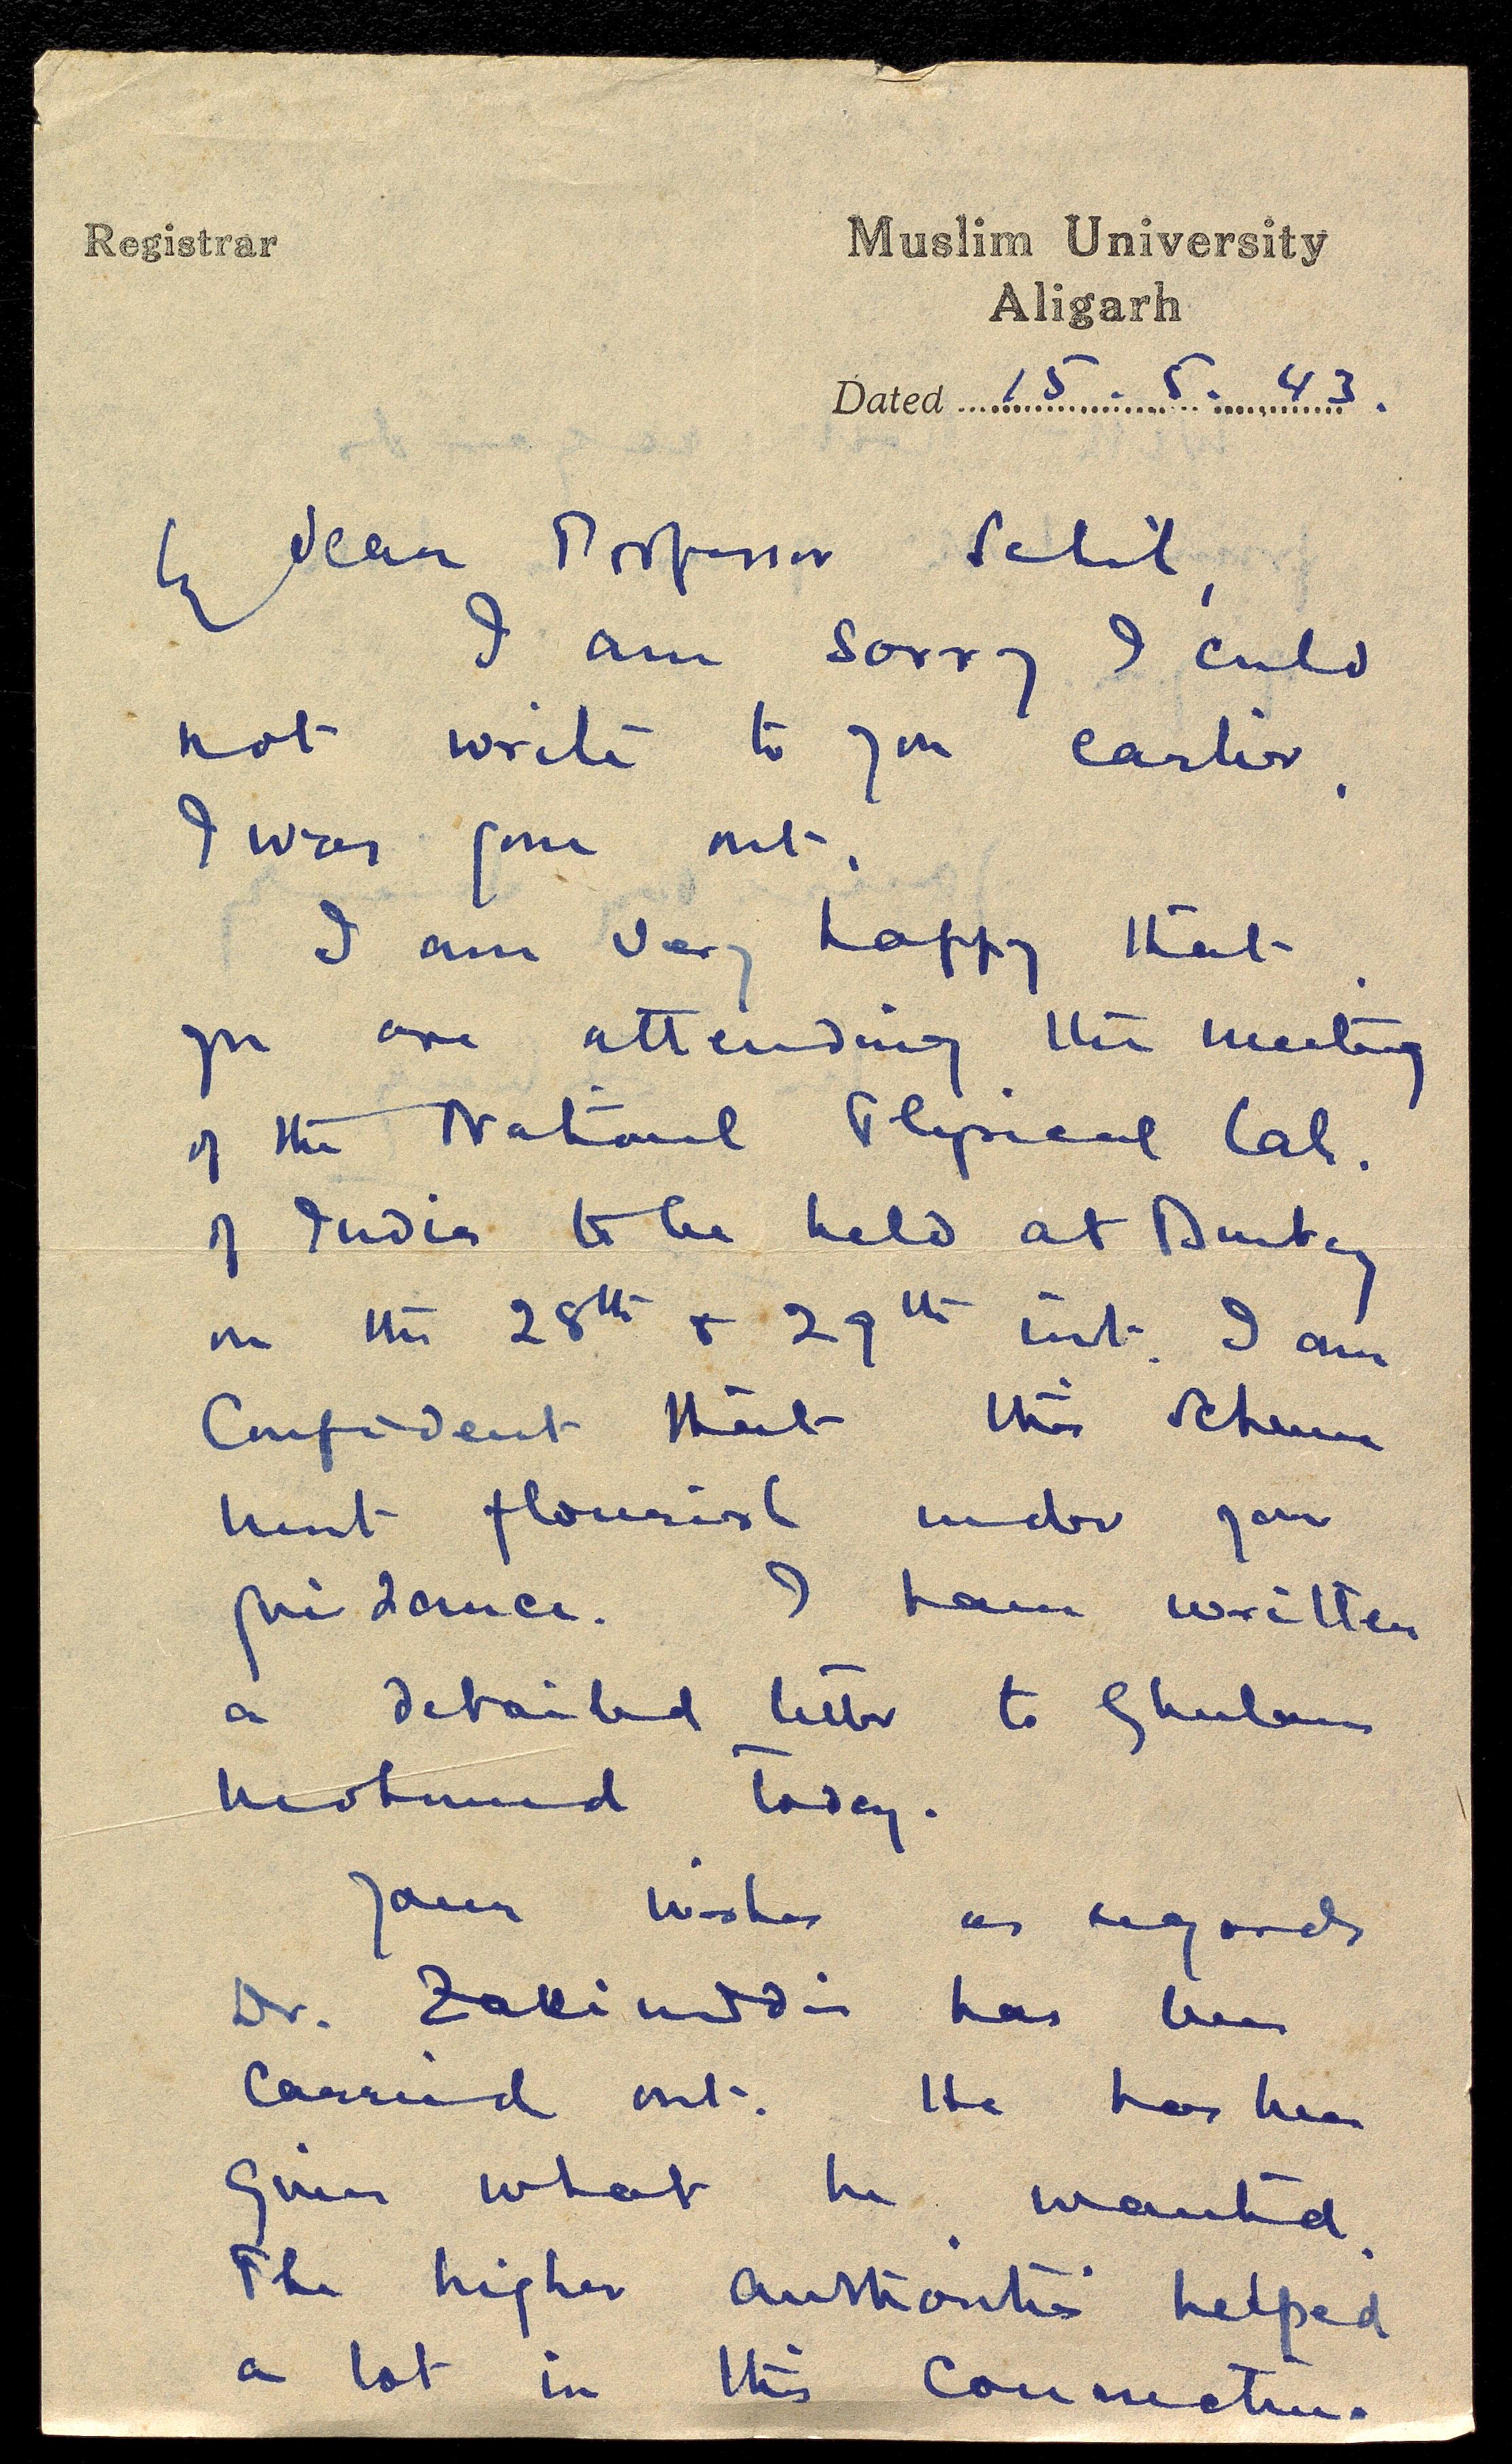 Registrar
Muslim University
Aligarh
Dated 15.5.43.
My dear Professor Sahib,
I am sorry I could
not write to you earlier.
I was gone out.
I am very happy that
you are attending the meeting
of the National Physical Lab.
of India to be held at Bombay
on the 28th & 29th inst. I am
Confident that this scheme
must flourish under your
guidance. I have written
a detailed letter to Ghulam
Mohammed today.
Your wishes as regards
Dr. Zakiuddin has been
Carried out. He has been
Given what he wanted.
The higher authorities helped
a lot in this Connection.